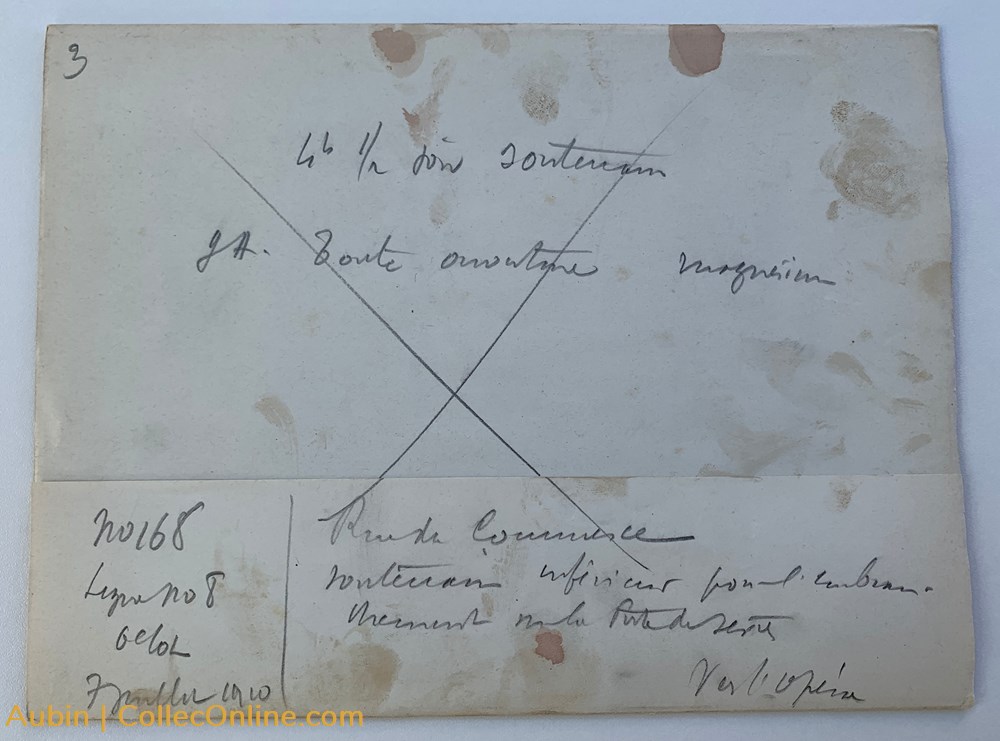 3
4h 1/2 soir souterrain
JA. Toute ouverture magnésium
No 168
Ligne no 8
7 juillet 1910
Rue du Commerce
souterrain inférieur pour l'embran-
chement sur la Porte de Sèvres
Vers l'opéra
Aubin | CollecOnline.com